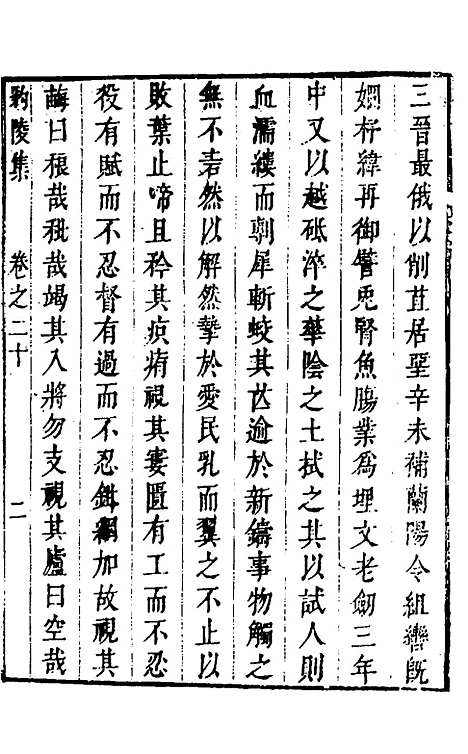 三晉最俄以削苴居堊辛未補蘭陽令組轡既
嫺杼緯再御譬兎腎魚腸業為埋文老劒三年
中又以越砥淬之華陰之土拭之其以試人則
血濡縷而剸犀斬蛟其芒逾於新鑄事物觸之
無不砉然以解然摯於愛民乳而翼之不止以
敗葉止啼且矜其疻痏視其窶匱有工而不忍
役有賦而不忍督有過而不忍鉗鈦加故視其
畮曰稂哉秕哉竭其入將勿支視其廬曰空哉
豹陵集 卷之二十 二